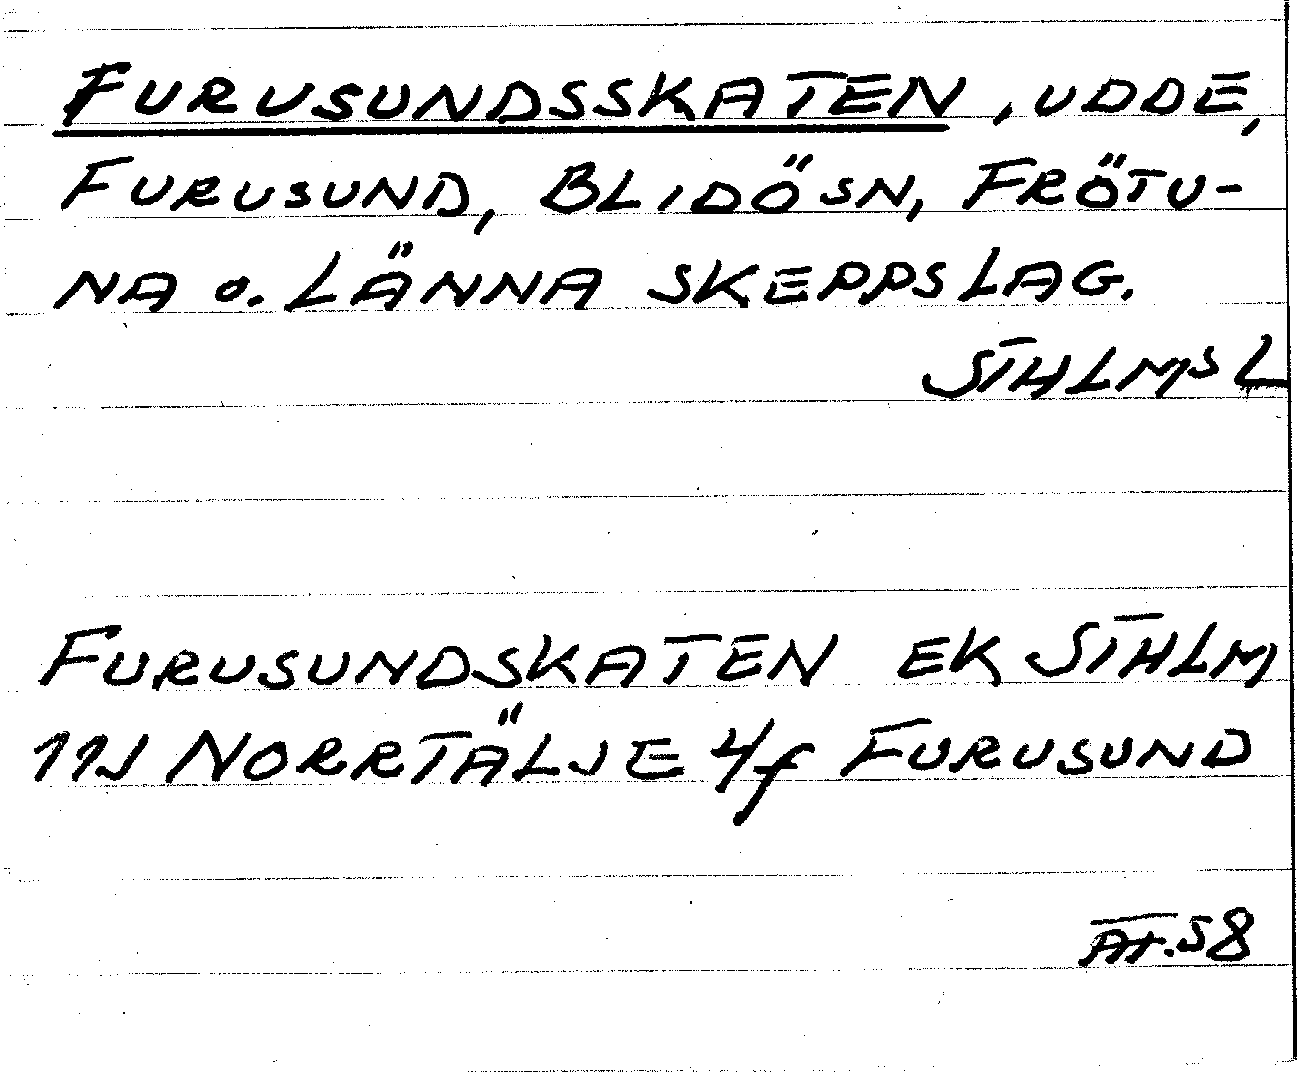 FURUSUNDSSKATEN, UDDE,
FURUSUND, BLIDÖ SN, FRÖTU-
NA o. LÄNNA SKEPPSLAG.
STHLMS L
FURUSUNDSKATEN EK STHLM
11J NORRTÄLJE 4/f FURUSUND
ÅT.58